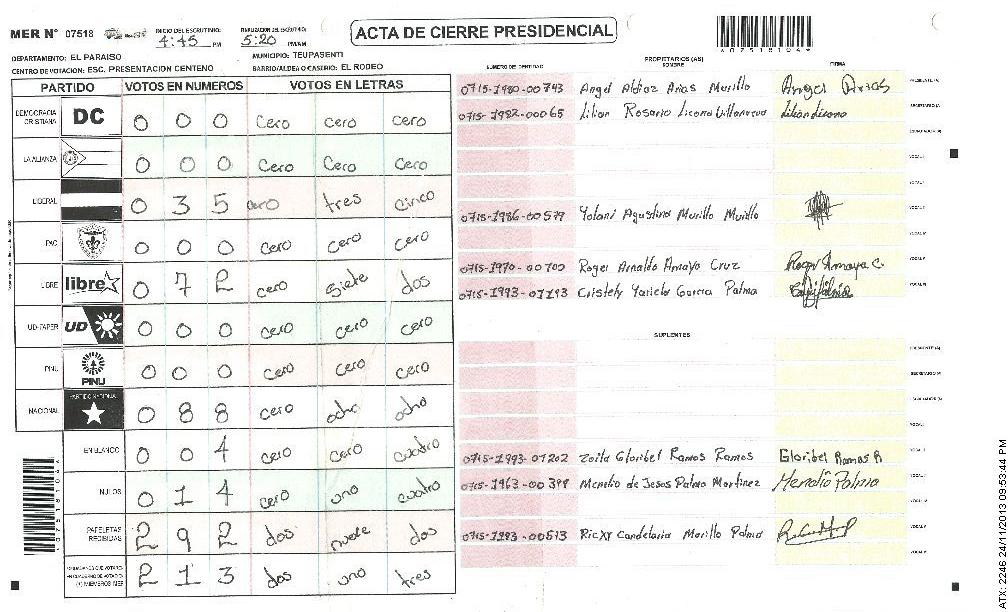 MER N° 07518
INICIO DEL ESCRUTINIO: 4:45 PM
5:20 PM/AM
ACTA DE CIERRE PRESIDENCIAL
DEPARTAMENTO: EL PARAISO
MUNICIPIO: TEUPASENTI
CENTRO DE VOTACION: ESC. PRESENTACION CENTENO
BARRIO/ALDEA O CASERIO: EL RODEO
PARTIDO VOTOS EN NUMEROS VOTOS EN LETRAS
DEMOCRACIA CRISTIANA DC 0 0 0 cero cero cero
LA ALIANZA 0 0 0 cero cero cero
LIBERAL 0 3 5 cero tres cinco
PAC 0 0 0 cero cero cero
LIBRE libre 0 7 2 cero siete dos
UD-FAPER UD 0 0 0 cero cero cero
PINU PINU 0 0 0 cero cero cero
NACIONAL PARTIDO NACIONAL 0 8 8 cero ocho ocho
EN BLANCO 0 0 4 cero cero cuatro
NULOS 0 1 4 cero uno cuatro
PAPELETAS RECIBIDAS 2 9 2 dos nueve dos
2 1 3 dos uno tres
NUMERO DE IDENTIDAD
PROPIETARIOS (AS)
NOMBRE
FIRMA
0715-1980-00743 Angel Aldiaz Arias Murillo Angel Arias
0715-1982-00065 Lilian Rosario Licona Villanueva Lilian Licona
0715-1986-00579 Yolani Agustina Murillo Murillo
0715-1970-00700 Roger Arnaldo Amaya Cruz Roger Amaya C.
0715-1993-01193 Cristely Yariela Garcia Palma
SUPLENTES
0715-1993-01202 Zoila Gloribel Ramos Ramos Gloribel Ramos R
0715-1963-00398 Menelio de Jesus Palma Martinez Menelio Palma
0715-1993-00513 Ricxy Candelaria Murillo Palma
ATX: 2246 24/11/2013 09:53:44 PM